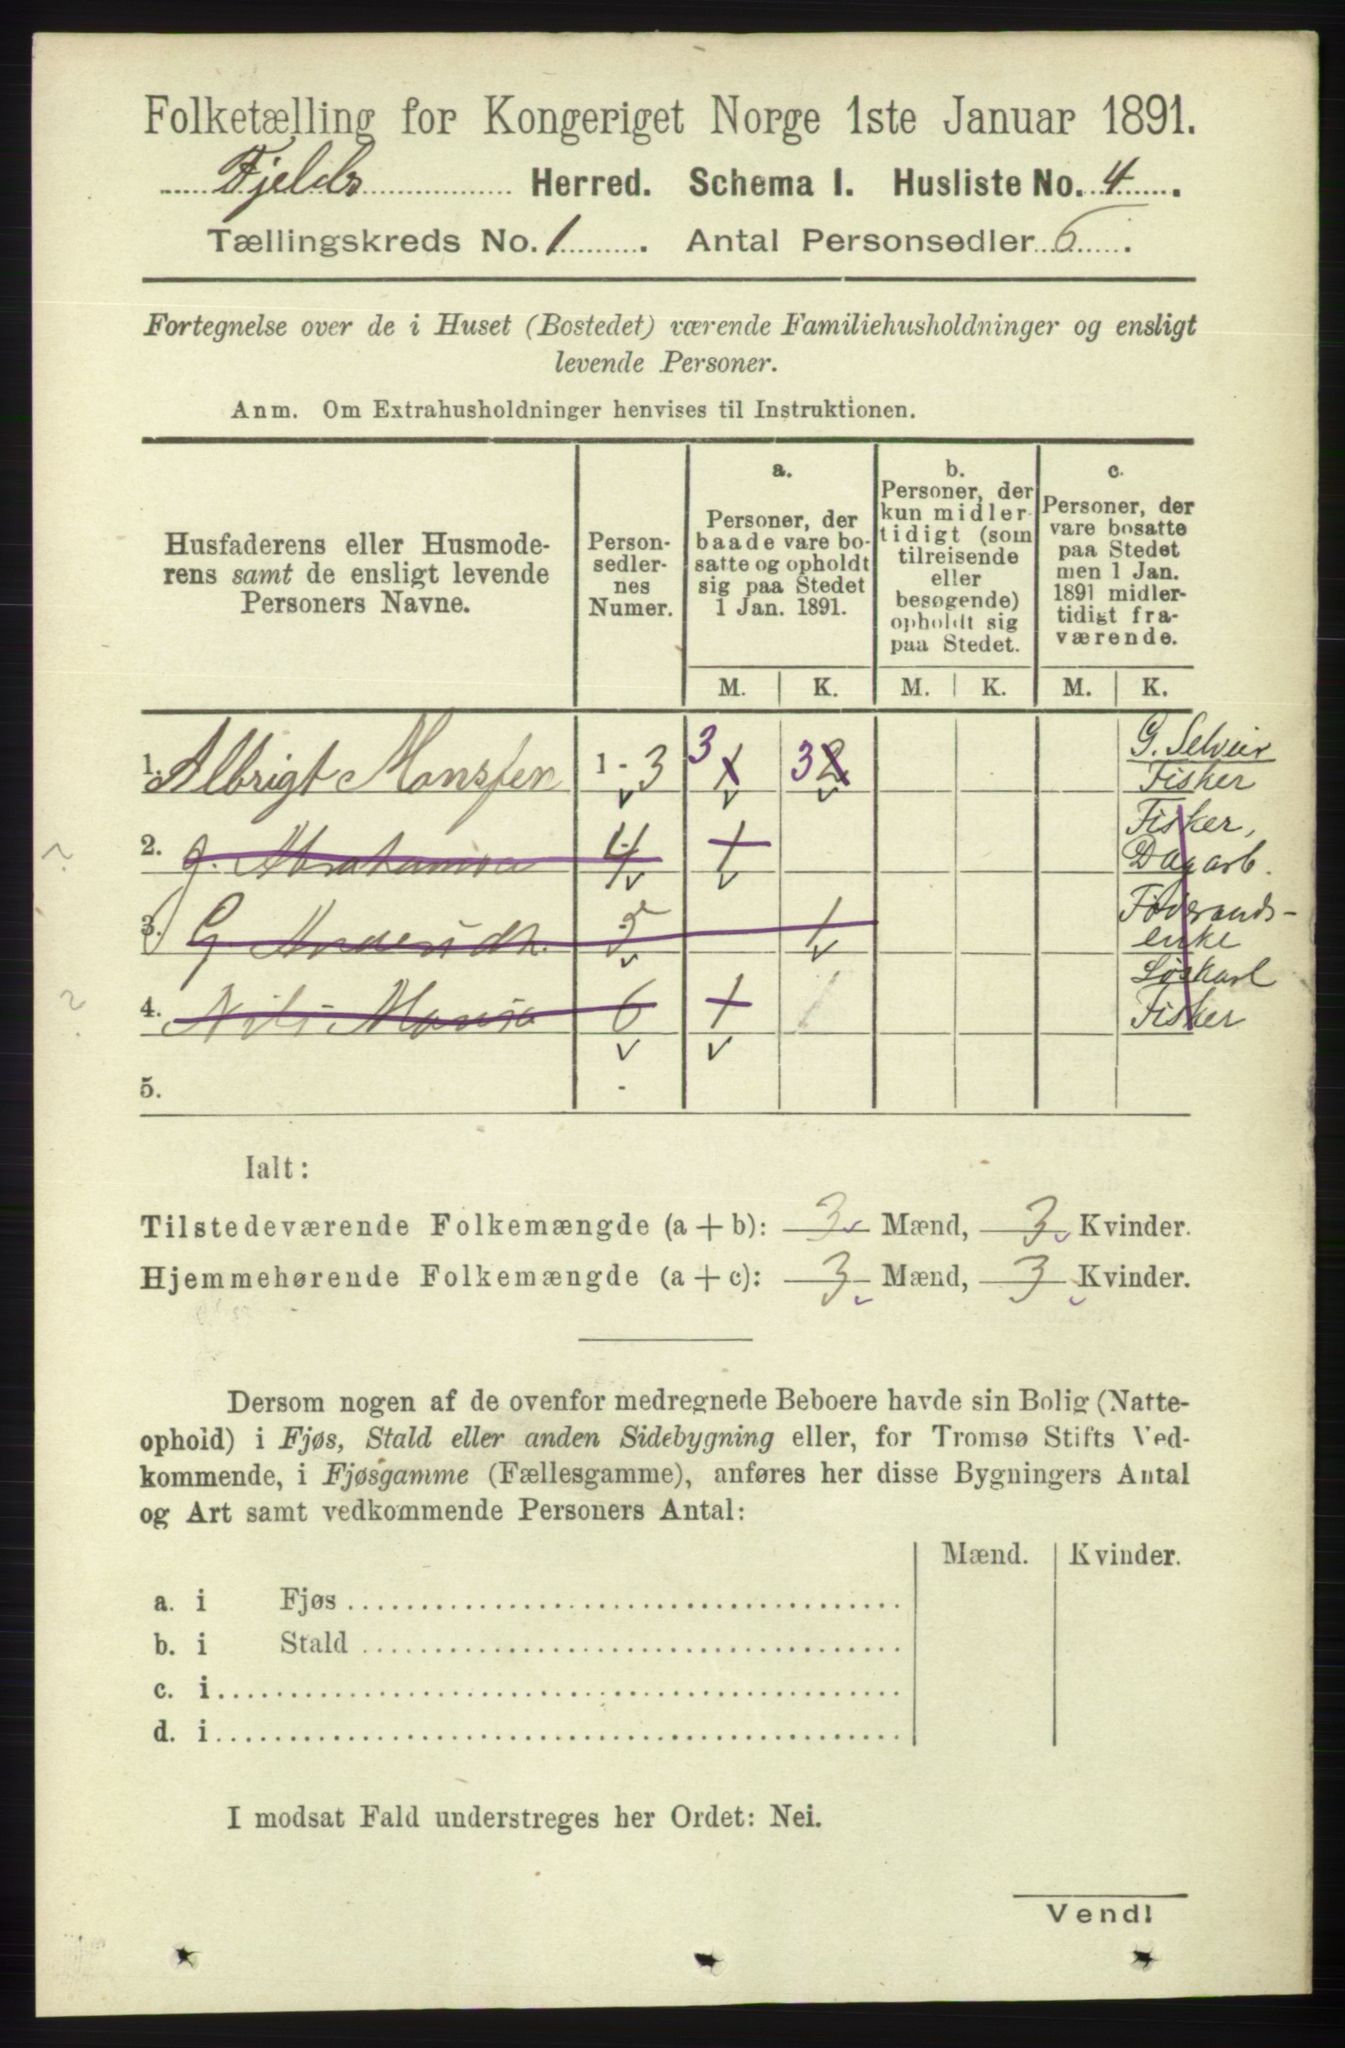 Folketælling for Kongeriget Norge 1ste Januar 1891.
Fjelds Herred. Schema I. Husliste No. 4.
Tællingskreds No. 1. Antal Personsedler 6.
Fortegnelse over de i Huset (Bostedet) værende Familiehusholdninger og ensligt
levende Personer.
Anm. Om Extrahusholdninger henvises til Instruktionen.
Husfaderens eller Husmode-
rens samt de ensligt levende
Personers Navne.
Person-
sedler-
nes
Numer.
a.
Personer, der
baade vare bo-
satte og opholdt
sig paa Stedet
1 Jan. 1891.
b.
Personer, der
kun midler-
tidigt (som
tilreisende
eller
besøgende)
opholdt sig
paa Stedet.
c.
Personer, der
vare bosatte
paa Stedet
men 1 Jan.
1891 midler-
tidigt fra-
værende.
M. K. M. K. M. K.
1. Albrigt Monssen 1-3 3 1 3 2 G. Selveier
Fisker
2. J. Abrahamsen 4 1 Fisker,
Dagarb.
3. G. 5 1 Føderaads-
enke
4. Nils Monsen 6 1 1 Løskarl
Fisker
5. -
Ialt:
Tilstedeværende Folkemængde (a + b): 3 Mænd, 3 Kvinder.
Hjemmehørende Folkemængde (a + c): 3 Mænd, 3 Kvinder.
Dersom nogen af de ovenfor medregnede Beboere havde sin Bolig (Natte-
ophold) i Fjøs, Stald eller anden Sidebygning eller, for Tromsø Stifts Ved-
kommende, i Fjøsgamme (Fællesgamme), anføres her disse Bygningers Antal
og Art samt vedkommende Personers Antal:
Mænd. Kvinder.
a. i Fjøs
b. i Stald
c. i
d. i
I modsat Fald understreges her Ordet: Nei.
Vend!